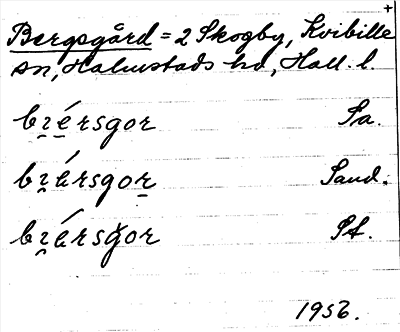 +
Bergsgård = 2 Skogby, Kvibille
sn, Halmstads hd, Hall. l.
bɪ̯é̯rsgor Sa.
bɪ̯ársgor̲ Sand.
bɪ̯ársgor St.
1956.